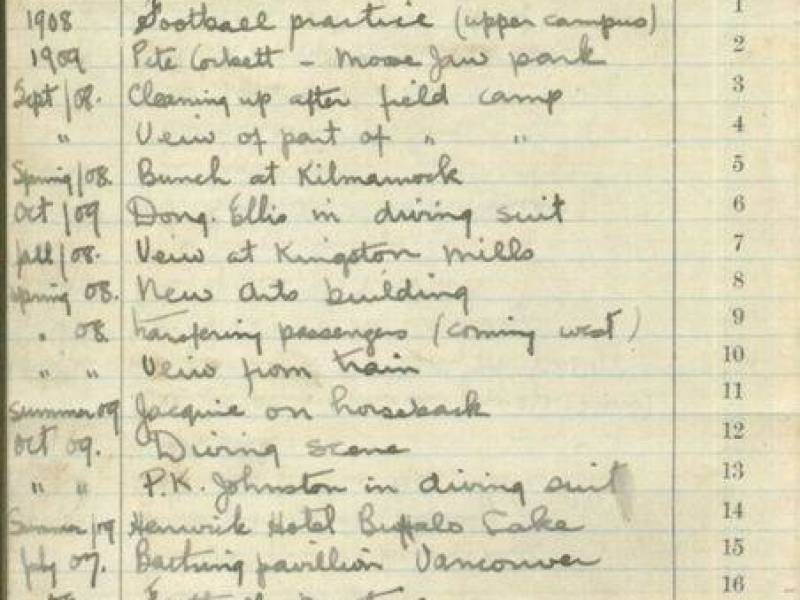 1908 Football practice (upper campus) 1
1909 Pete Corbett - Moose Jaw park 2
Sept/08. Cleaning up after field camp 3
" Veiw of part of " " 4
Spring/08. Bunch at Kilmarnock 5
Oct/09 Doug. Ellis in diving suit 6
fall/08. Veiw at Kingston Mills 7
spring 08. New Arts building 8
" 08. transfering passengers (coming west) 9
" " Veiw from train 10
summer 09 Jacquie on horseback 11
Oct 09. Diving scene 12
" " P.K. Johnston in diving suit 13
Summer/09 Hotel Buffalo Lake 14
July 07. Bathing pavillion Vancouver 15
16